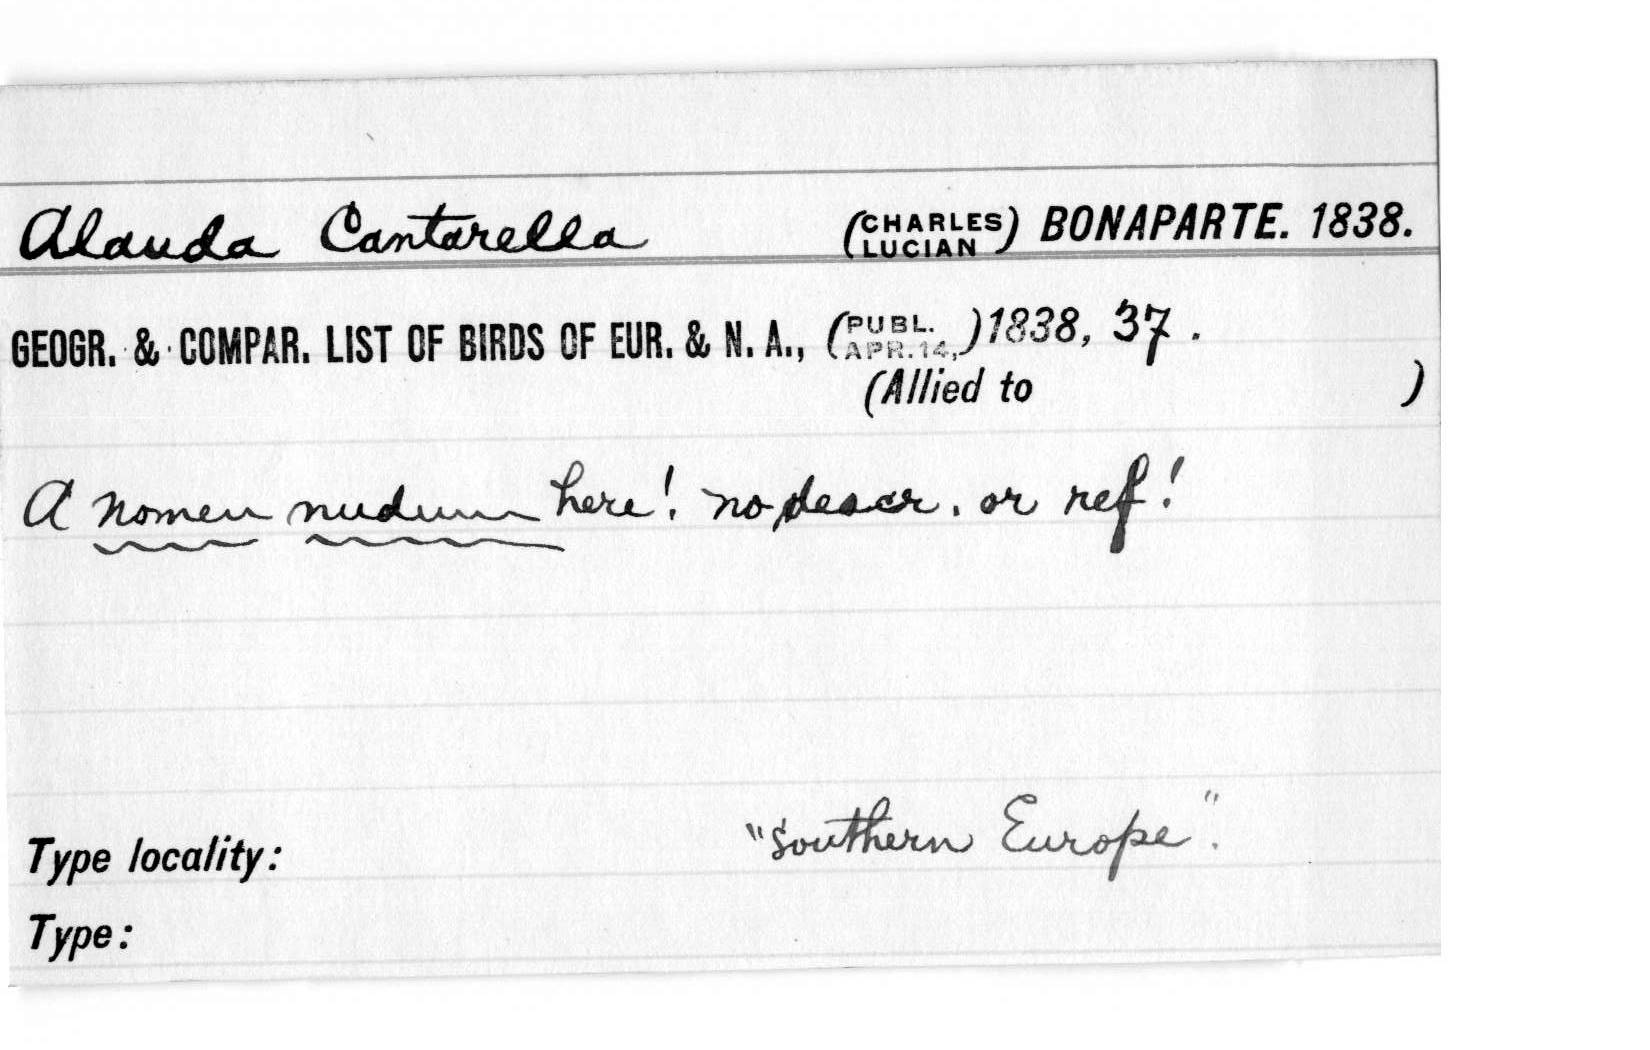 Alauda Cantarella (CHARLES LUCIAN) BONAPARTE. 1838.
GEOGR. & COMPAR. LIST OF BIRDS OF EUR. & N. A., (PUBL. APR. 14,) 1838, 37.
(Allied to )
A nomen nudum here! no descr. or ref!
Type locality: "Southern Europe".
Type: